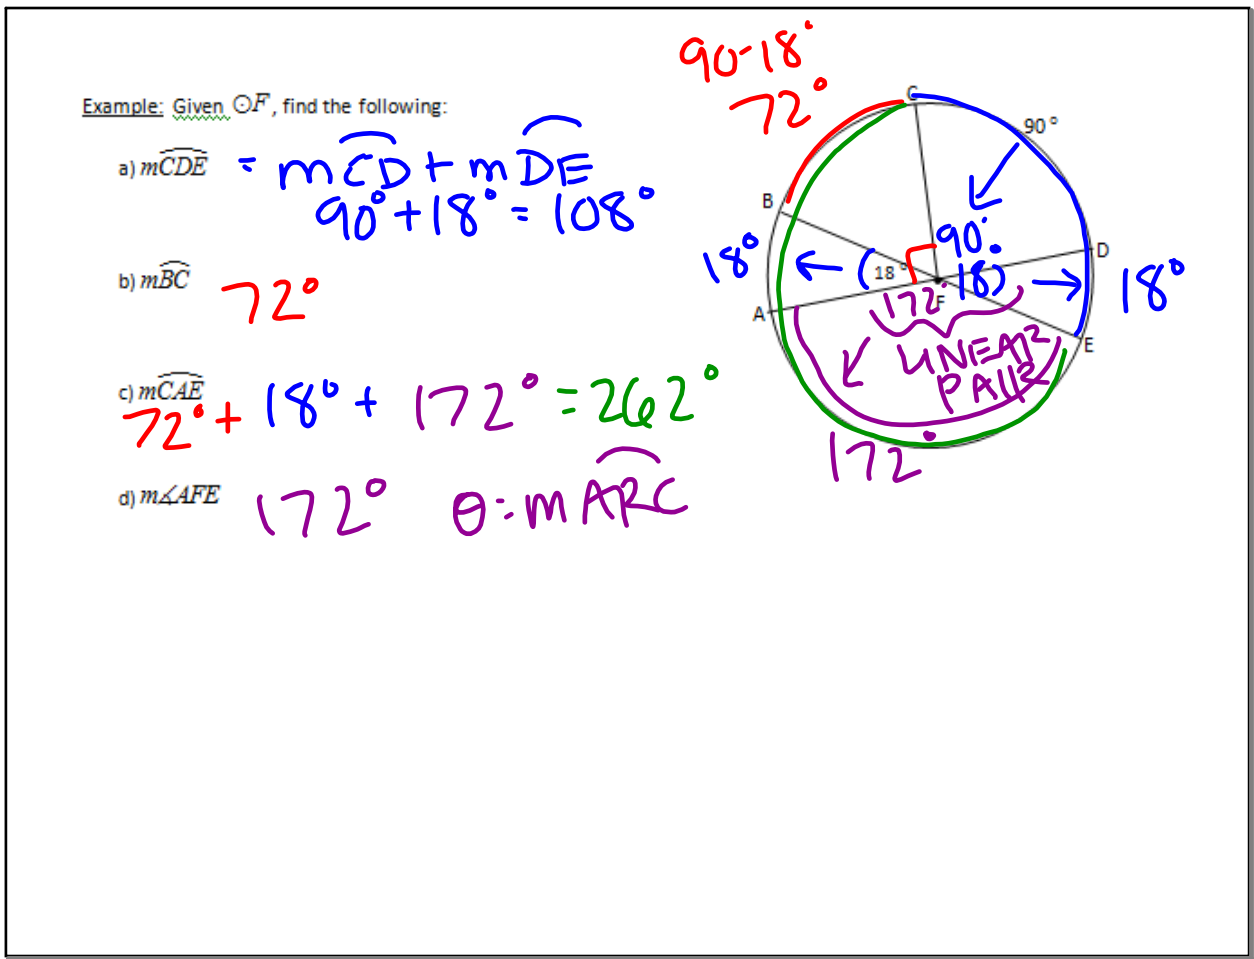 90-18°
72°
Example: Given ⊙F, find the following:
a) mCDE = mCD + mDE
90° + 18° = 108°
b) mBC 72°
c) mCAE
72° + 18° + 172° = 262°
d) m∡AFE 172° θ = mARC
C
90°
B
90°
D
18°
18°
18)
18°
172°
F
A
E
LINEAR
PAIR
172°